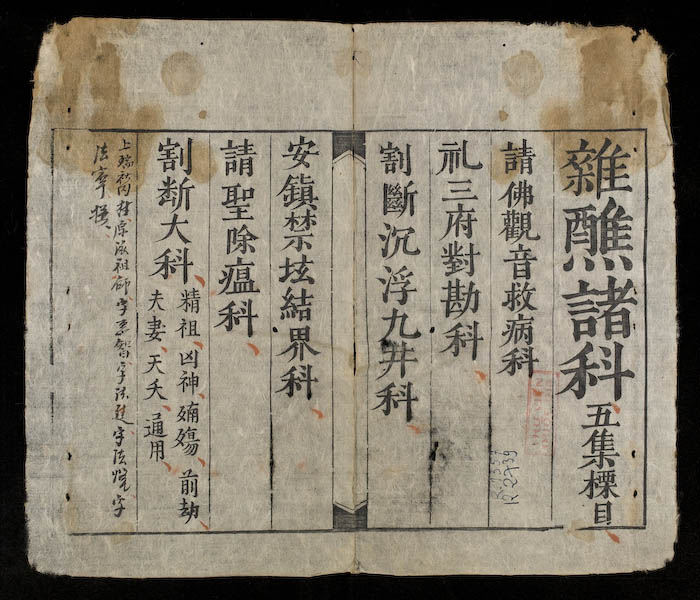 雜醮諸科五集標目
請佛觀音救病科
礼三府對勘科
割斷沉浮九井科
安鎮禁垓結界科
請聖除瘟科
割断大科
精祖、凶神、殤、前劫
夫妻、天夭、通用、
上 派祖師字 字法 字法 字
法寧